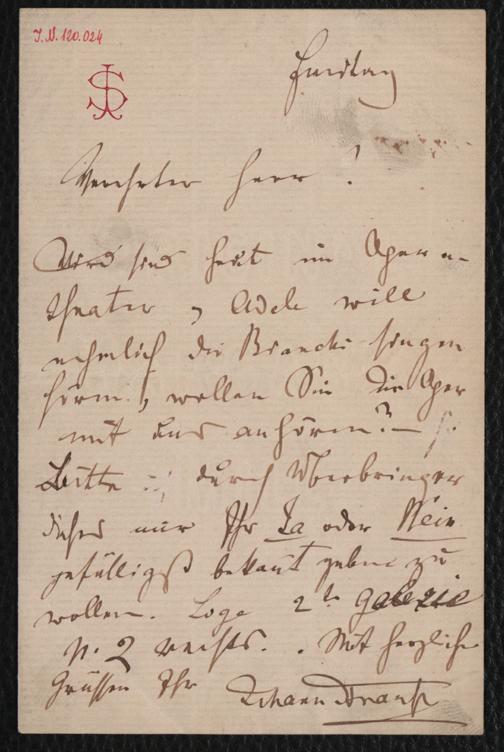 I.N. 120.024
JS
Freitag
Verehrter Herr!
Wir sind heut im Opern-
theater, Adele will
nehmlich die Bianchi singen
hören!, wollen Sie die Oper
mit uns anhören? –
Bitte durch Überbringer
dieses nur Ihr Ja oder Nein
gefälligst bekant geben zu
wollen. Loge 2te Galerie
N. 2 rechts. . Mit herzlichen
Grüssen Ihr Johann Strauss